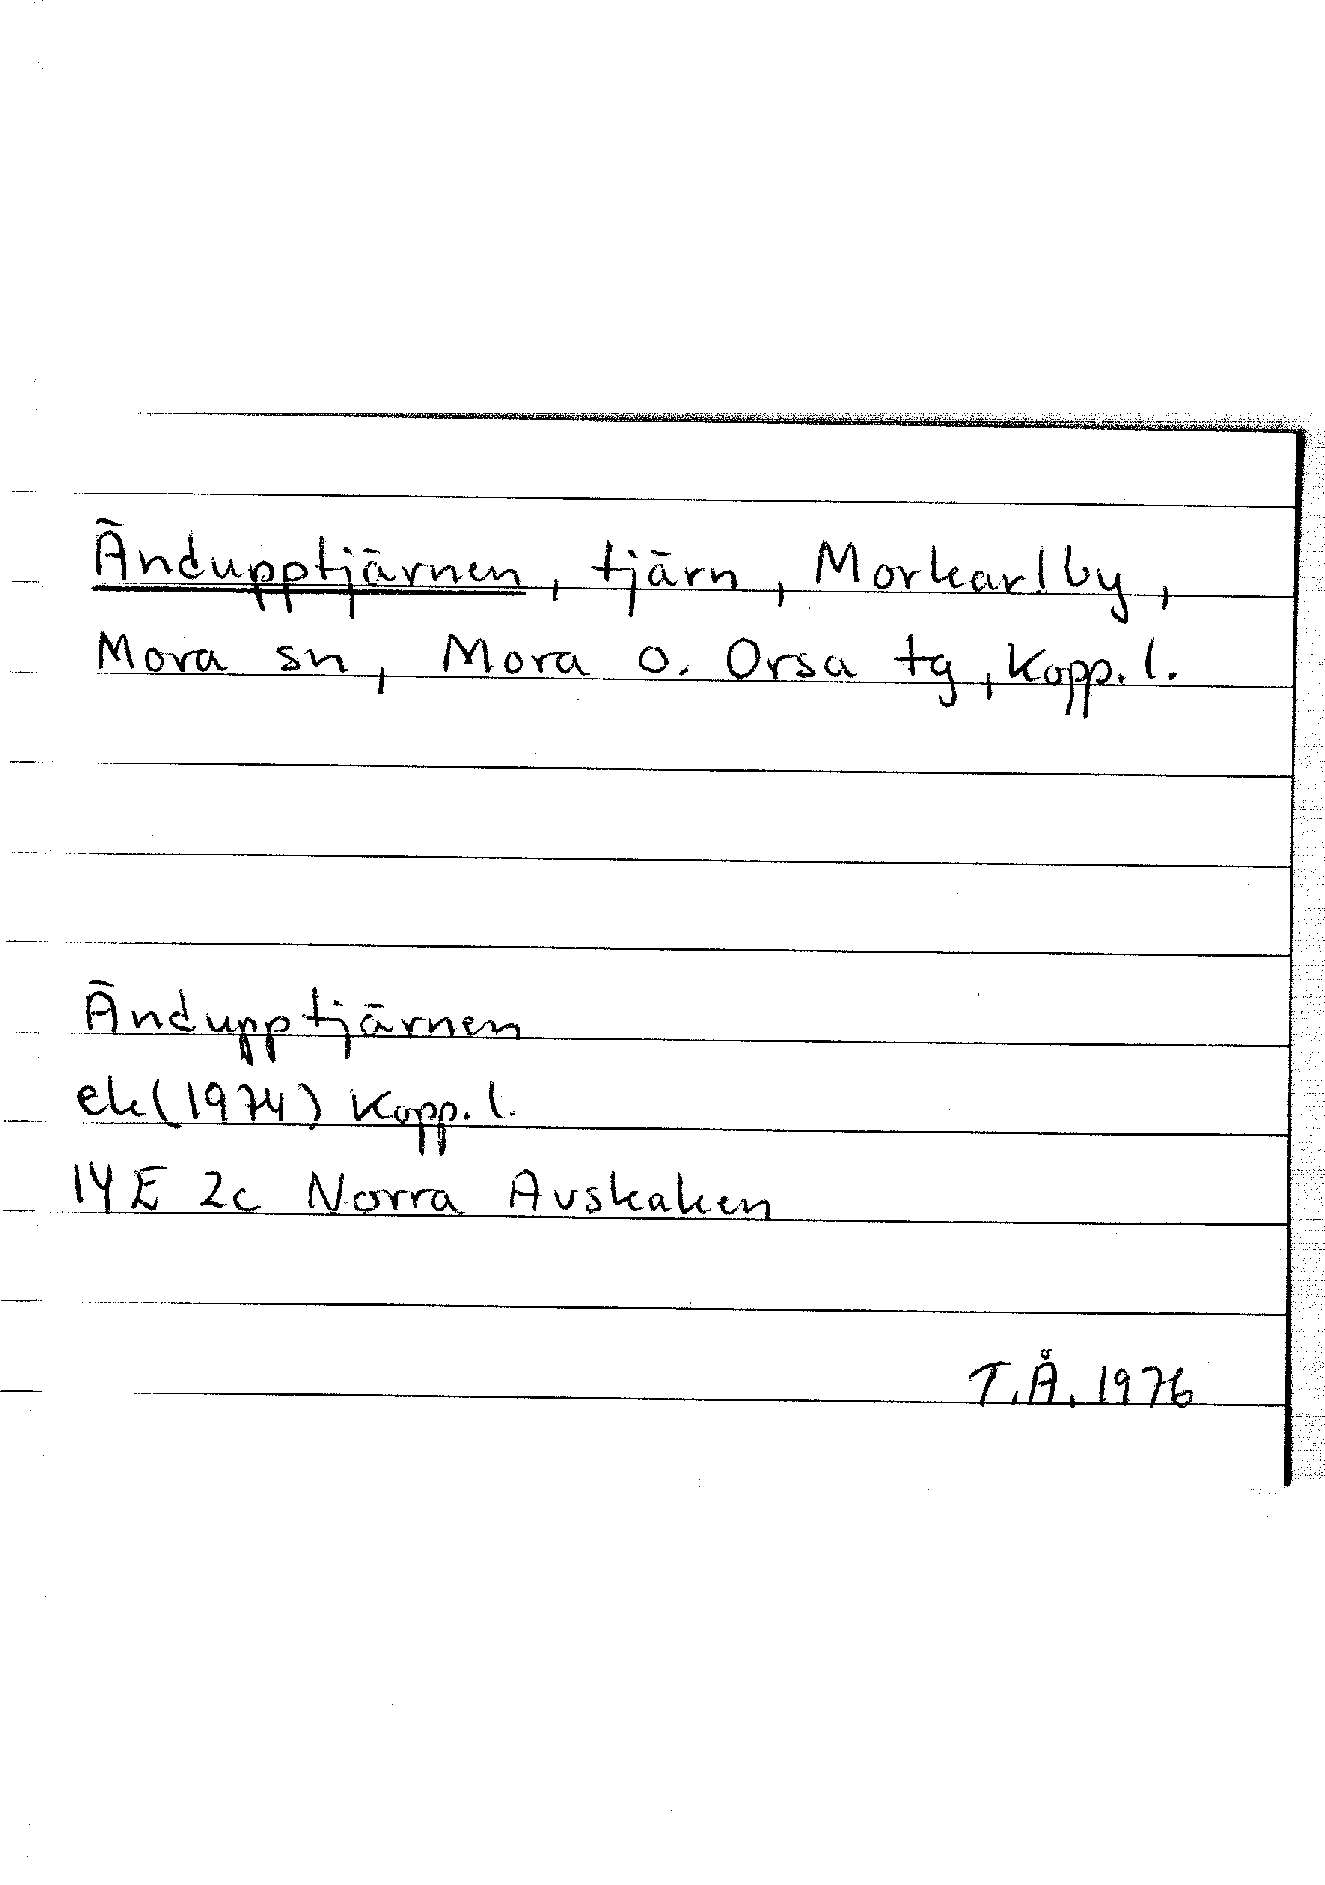 Ändupptjärnen, tjärn, Morkarlby,
Mora sn, Mora o. Orsa tg, Kopp. l.
Ändupptjärnen
ek (1974) Kopp. l.
14 E 2c Norra Avskaken
T.Å. 1976